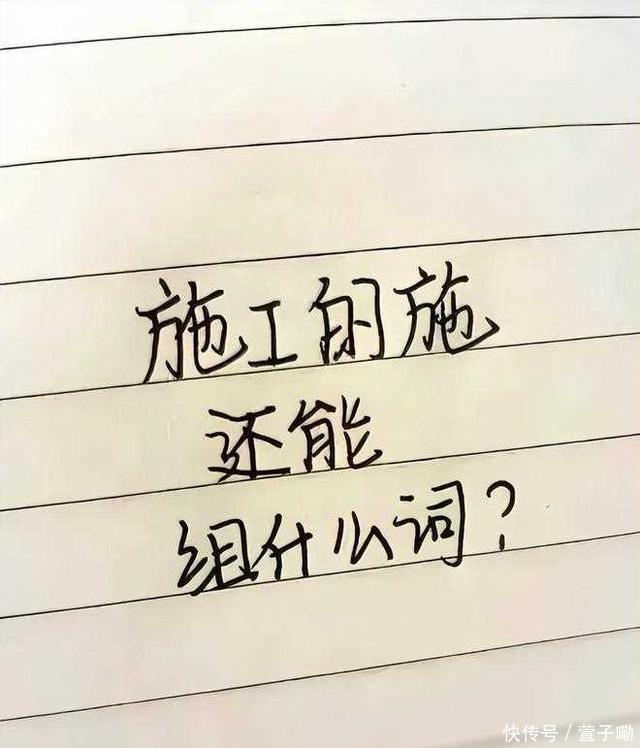 施工的施
还能
组什么词?
快传号/萱子嘞